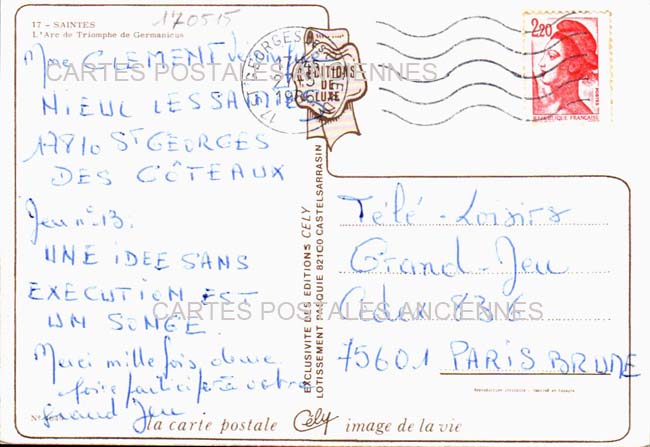 170515
17 - SAINTES
L'Arc de Triomphe de Germanicus
Mme CLEMENT
NIEUL LES SAINTES
17810 ST GEORGES
DES CÔTEAUX
Jeu n° 13.
UNE IDEE SANS
EXECUTION EST
UN SONGE.
Merci mille fois de me
faire participer à votre
grand Jeu
17 ST GEORGES DES
1986
EDITIONS
DE
LUXE
2,20
REPUBLIQUE FRANÇAISE
EXCLUSIVITE DES EDITIONS CELY
LOTISSEMENT PASQUIE 82100 CASTELSARRASIN
Télé-Loisirs
Grand-Jeu
Cedex 838
75601 PARIS BRUNE
la carte postale Cély image de la vie
CARTES POSTALES ANCIENNES
CARTES POSTALES ANCIENNES